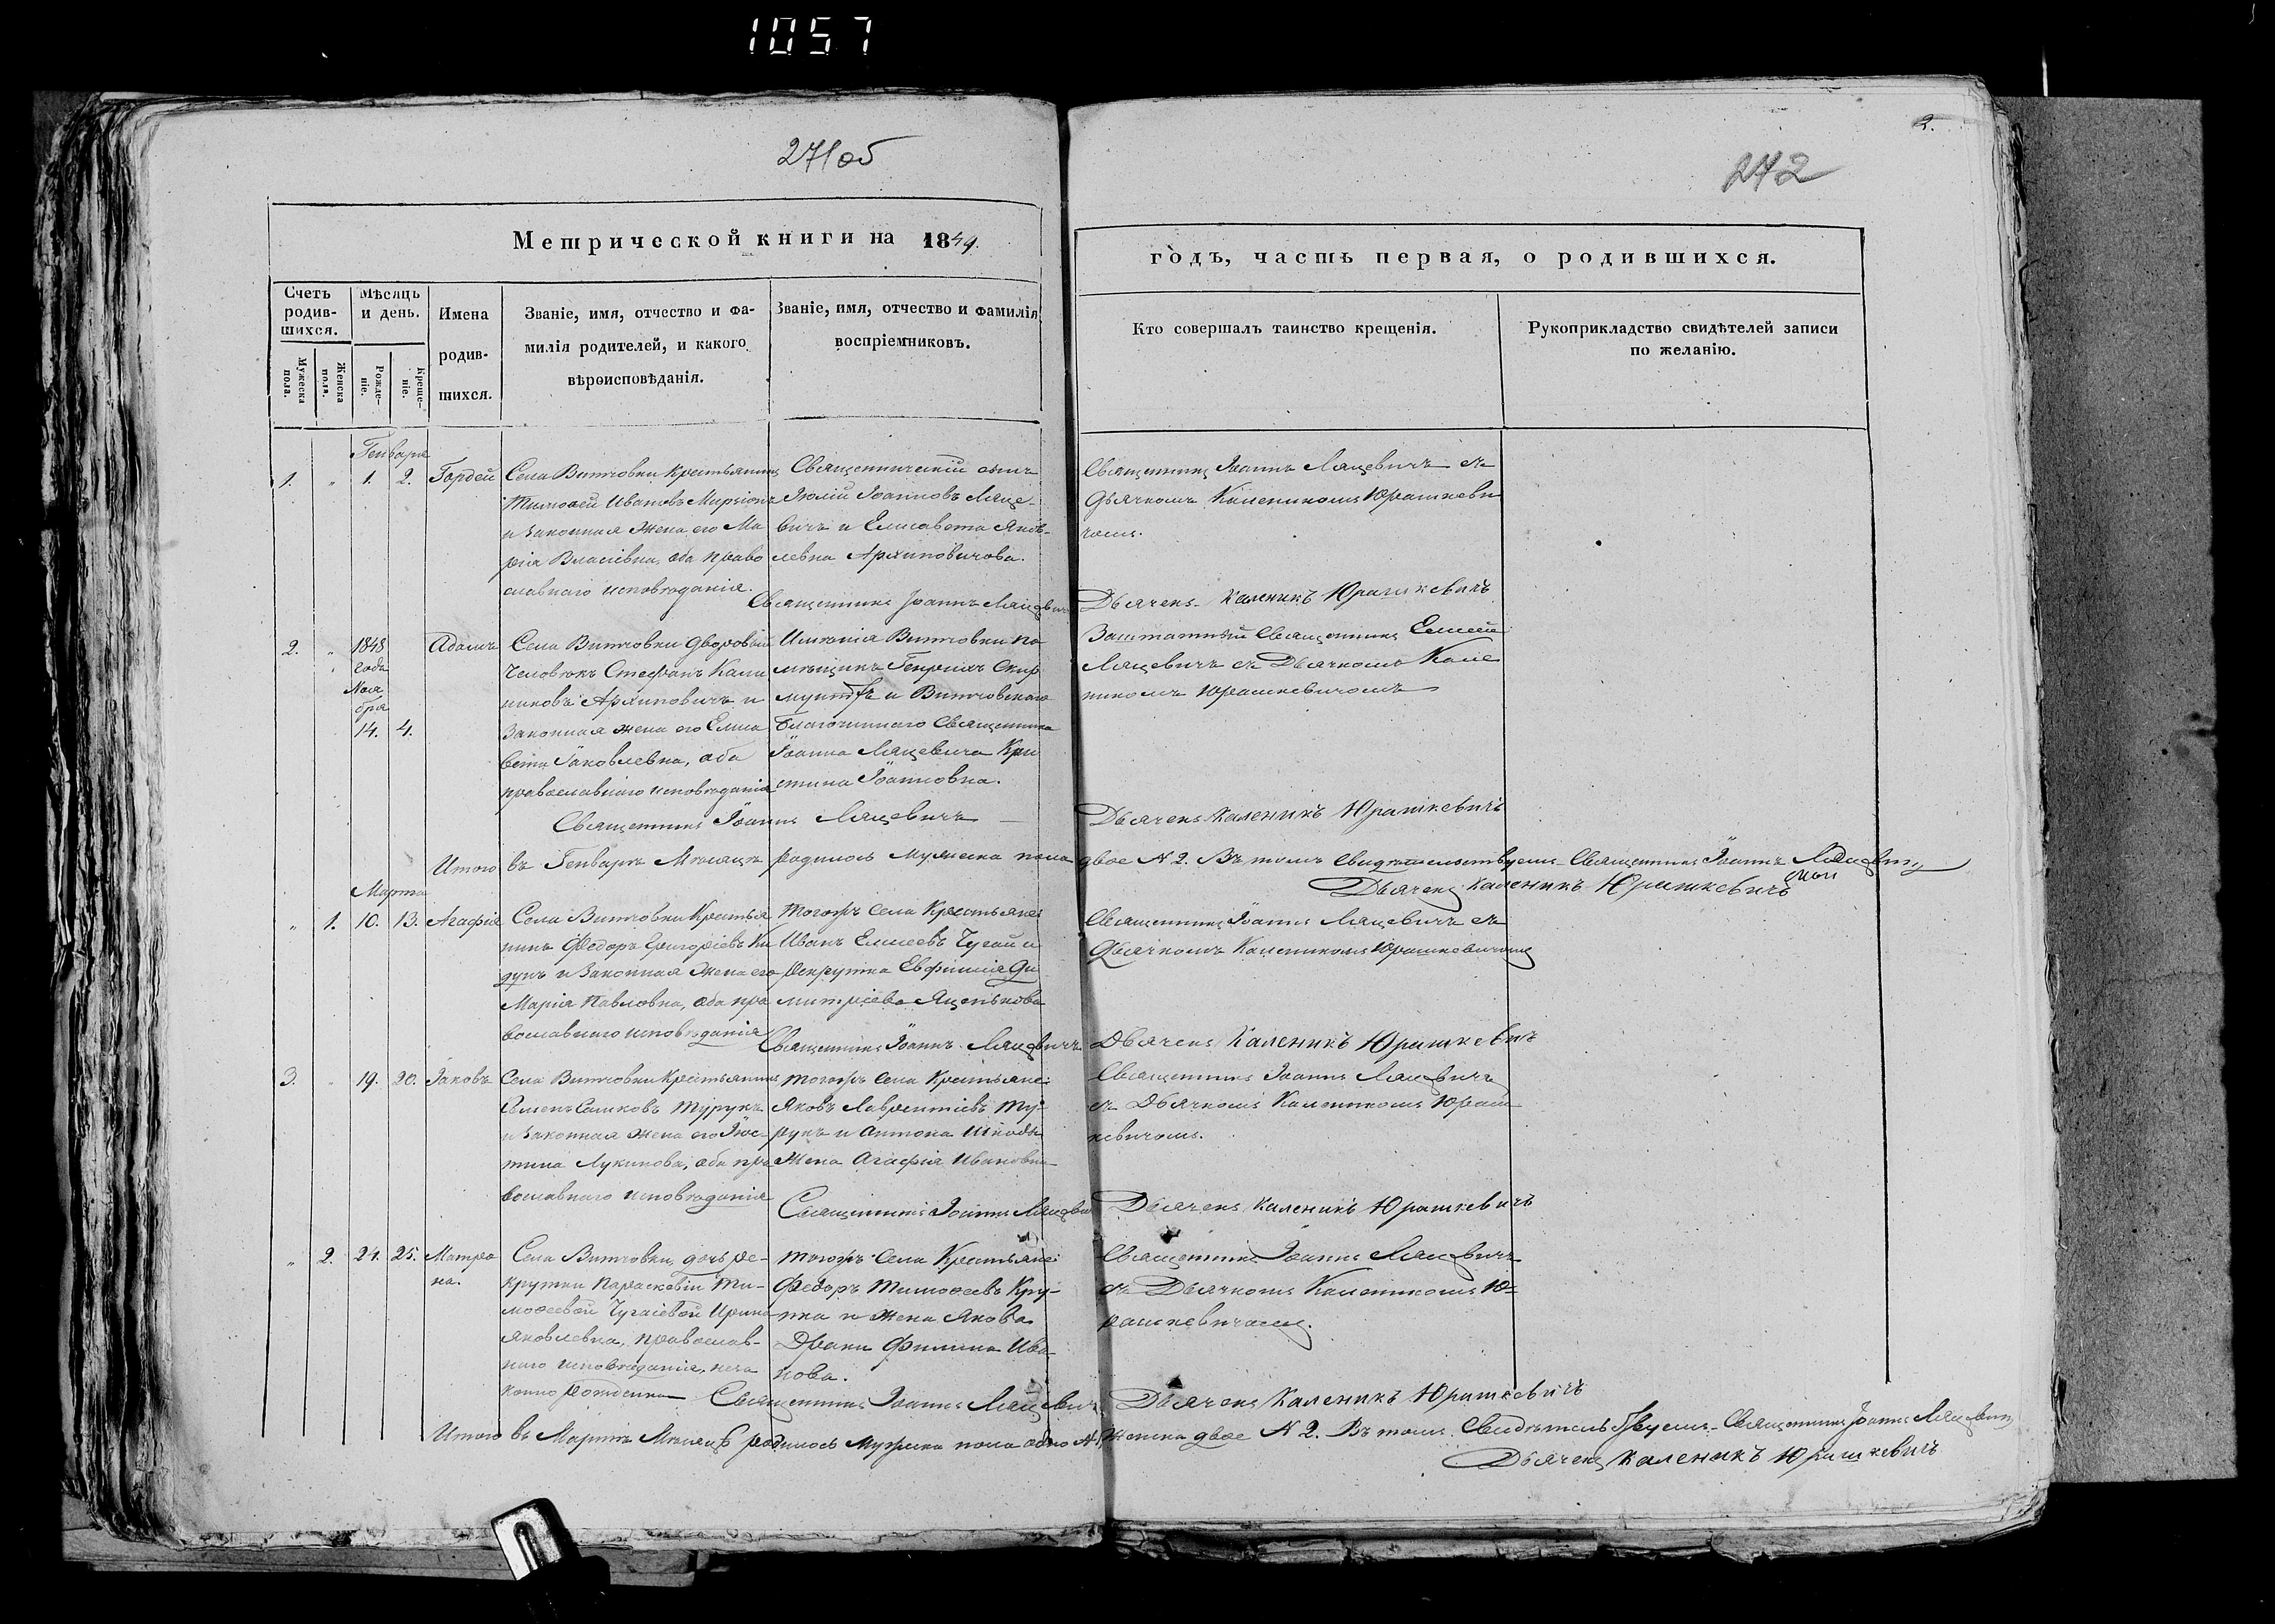 1057
271об
2.
272
Метрической книги на 1849.
годъ, часть первая, о родившихся.
Счетъ родив-шихся.
Мужеска пола.
Женска пола.
Мѣсяцъ и день.
Рожде-ніе.
Креще-ніе.
Имена
родив-
шихся.
Званіе, имя, отчество и фа-
милія родителей, и какого
вѣроисповѣданія.
Званіе, имя, отчество и фамилія
воспріемниковъ.
Кто совершалъ таинство крещенія.
Рукоприкладство свидѣтелей записи
по желанію.
Генваря
1. " 1. 2. Гордей
Села Витчовки крестьянинъ
Тимофей Ивановъ
и законная жена его Ма
рія Власіевна, оба право
славнаго исповѣданія.
Священническій сынъ
Іюлій Іоанновъ Ляце-
вичъ и Елисавета Яков-
левна Архиповичова.
Священникъ Іоаннъ Ляцевичъ
Священникъ Іоаннъ Ляцевичъ съ
Дьячкомъ Каленикомъ Юрашкеви
чомъ.
Дьячекъ Каленикъ Юрашкевичъ
2. " 1848 года Ноя бря 14. 4. Адамъ
Села Витчовки дворовый
человѣкъ Стефанъ Кали
никовъ Архиповичъ и
законная жена его Елиса
вета Іаковлевна, оба
православнаго исповѣданія
Имѣнія Витчовки по
мѣщикъ Генрихъ Скир
мунтъ и Витчовскаго
Благочиннаго Священника
Іоанна Ляцевича Хри
стина Іоанновна.
Священникъ Іоаннъ Ляцевичъ
Заштатный Священникъ Елисей
Ляцевичъ съ Дьячкомъ Кале
никомъ Юрашкевичомъ
Дьячекъ Каленикъ Юрашкевичъ
Итого въ Генварѣ Мѣсяцѣ родилось мужеска пола двое N 2. Въ томъ свидѣтельствуемъ Священникъ Іоаннъ Ляцевичъ
Дьячекъ Каленикъ Юрашкевичъ
Марта
" 1. 10. 13. Агафія
Села Витчовки Крестья
нинъ Федоръ Григоріевъ Ки
дунъ и законная жена его
Марія Павловна, оба пра
вославнаго исповѣданія
Тогожъ села Крестьяне:
Иванъ Елисеевъ Чугай и
рекрутка Евфимія Ди
митріева Яценькова
Священникъ Іоаннъ Ляцевичъ
Священникъ Іоаннъ Ляцевичъ съ
Дьячкомъ Каленикомъ Юрашкевичомъ
Дьячекъ Каленикъ Юрашкевичъ
3. " 19. 20. Іаковъ
Села Витчовки Крестьянинъ
Семенъ Турукъ
и законная жена его Іюс-
тина Лукинова, оба пра
вославнаго исповѣданія
тогожъ села Крестьяне:
Яковъ Лаврентіевъ Ту-
рукъ и Антона Шкоды
жена Агафія Ивановна
Священникъ Іоаннъ Ляцевичъ
Священникъ Іоаннъ Ляцевичъ
съ Дьячкомъ Каленикомъ Юраш
кевичомъ.
Дьячекъ Каленикъ Юрашкевичъ
" 2. 24. 25. Матро
на.
Села Витчовки, дочь ре-
крутки Параскевіи Ти-
мофеевой Чугаіевой Ирина
Яковлевна, православ-
наго исповѣданія, неза
конно рожденна
тогожъ села Крестьяне:
Федоръ Тимофеевъ Кру-
пка и жена Якова
Драки Ива
нова.
Священникъ Іоаннъ Ляцевичъ
Священникъ Іоаннъ Ляцевичъ
съ Дьячкомъ Каленикомъ Ю-
рашкевичомъ.
Дьячекъ Каленикъ Юрашкевичъ
Итого въ Мартѣ Мѣсяцѣ родилось мужеска пола одно N 1, женска двое N 2. Въ томъ свидѣтельствуемъ Священникъ Іоаннъ Ляцевичъ
Дьячекъ Каленикъ Юрашкевичъ